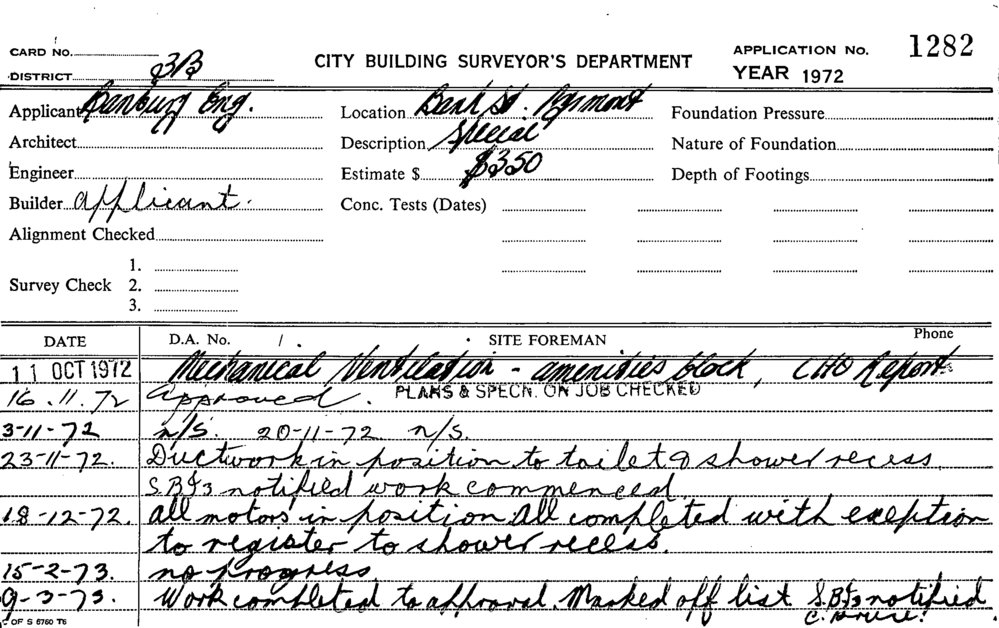 CARD NO.
DISTRICT 3B
CITY BUILDING SURVEYOR'S DEPARTMENT
APPLICATION No. 1282
YEAR 1972
Applicant Banbury Eng.
Location Bank St. Pyrmont
Foundation Pressure
Architect
Description Special
Nature of Foundation
Engineer
Estimate $ $350
Depth of Footings
Builder applicant.
Conc. Tests (Dates)
Alignment Checked
Survey Check 1.
2.
3.
DATE D.A. No. SITE FOREMAN Phone
11 OCT 1972 Mechanical Ventilation - amenities block, CHO Report
16.11.72 Approved. PLANS & SPECN. ON JOB CHECKED
3-11-72 n/s. 20-11-72 n/s.
23-11-72. Ductwork in position to toilet & shower recess.
notified work commenced
18-12-72. all motors in position. All completed with exeption
to register to shower recess.
15-2-73. no progress
9-3-73. Work completed to approval. Marked off list notified.
OF S 6760 T6